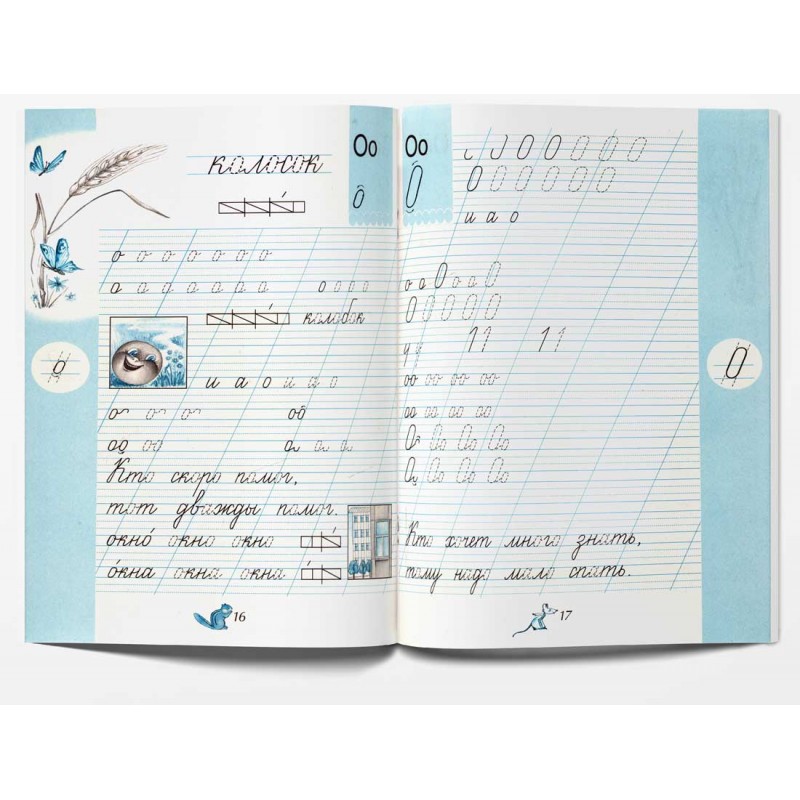 колосок
Оо
о
о о о о о о о
а а а а а а а о о о о
колобок
о
и а о и а о
о о о об
оо оо о о о
Кто скоро помог,
тот дважды помог.
окно́ окно окно
о́кна окна окна
16
Оо
О
О О О О О О
О О О О О О
и а о
о а О о а О
О О О О О
и и 11 11
оо оо оо оо
оо оо оо оо
Оо Оо Оо Оо
Оо Оо Оо Оо
О
Кто хочет много знать,
тому надо мало спать.
17